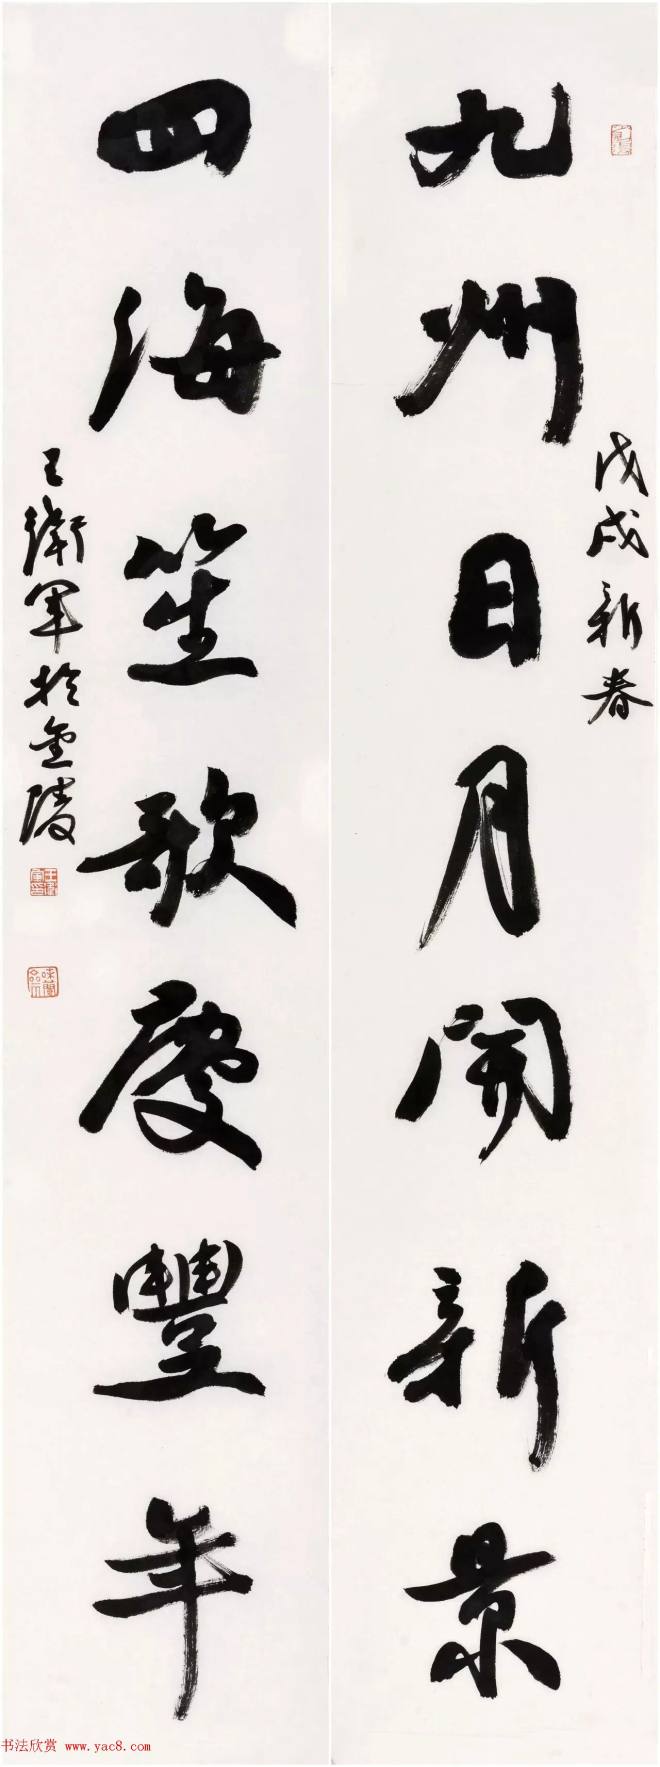 九州日月開新景
戊戌新春
四海笙歌慶豐年
王衛軍於金陵
书法欣赏 www.yac8.com